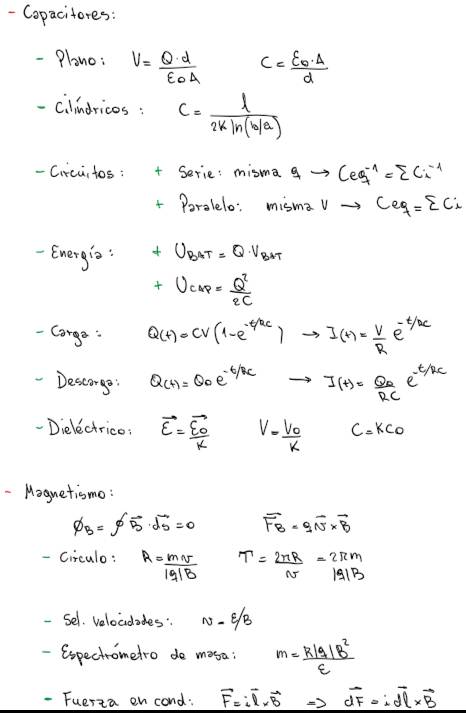 - Capacitores:
- Plano: V = Q·d / ε₀A    C = ε₀·A / d
- Cilíndricos: C = l / 2K ln(b/a)
- Circuitos: + Serie: misma q → Ceq⁻¹ = Σ Ci⁻¹
+ Paralelo: misma V → Ceq = Σ Ci
- Energía: + U_BAT = Q·V_BAT
+ U_CAP = Q² / 2C
- Carga: Q(t) = CV(1-e^(-t/RC)) → I(t) = V/R e^(-t/RC)
- Descarga: Q(t) = Q₀ e^(-t/RC) → I(t) = Q₀/RC e^(-t/RC)
- Dieléctrico: E⃗ = E⃗₀/K    V = V₀/K    C = KC₀
- Magnetismo:
Ø_B = ∮ B⃗·d⃗s = 0    F⃗_B = q v⃗ × B⃗
- Círculo: R = mv / |q|B    T = 2πR / v = 2πm / |q|B
- Sel. velocidades: v - E/B
- Espectrómetro de masa: m = R|q|B² / E
- Fuerza en cond: F⃗ = i l⃗ × B⃗ => d⃗F = i d⃗l × B⃗